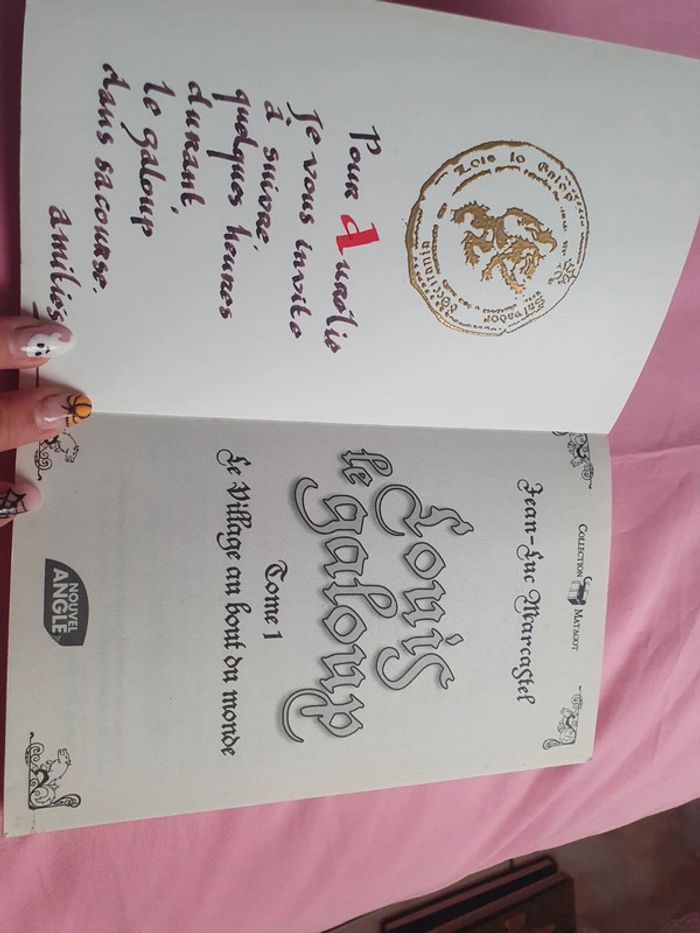 Pour Aurélie
Je vous invite
à suivre,
quelques heures
durant,
le galoup
dans sa course.
amitiés
COLLECTION MATAGOT
Jean-Luc Marcastel
Louis
le galoup
Tome 1
Le Village au bout du monde
NOUVEL
ANGLE